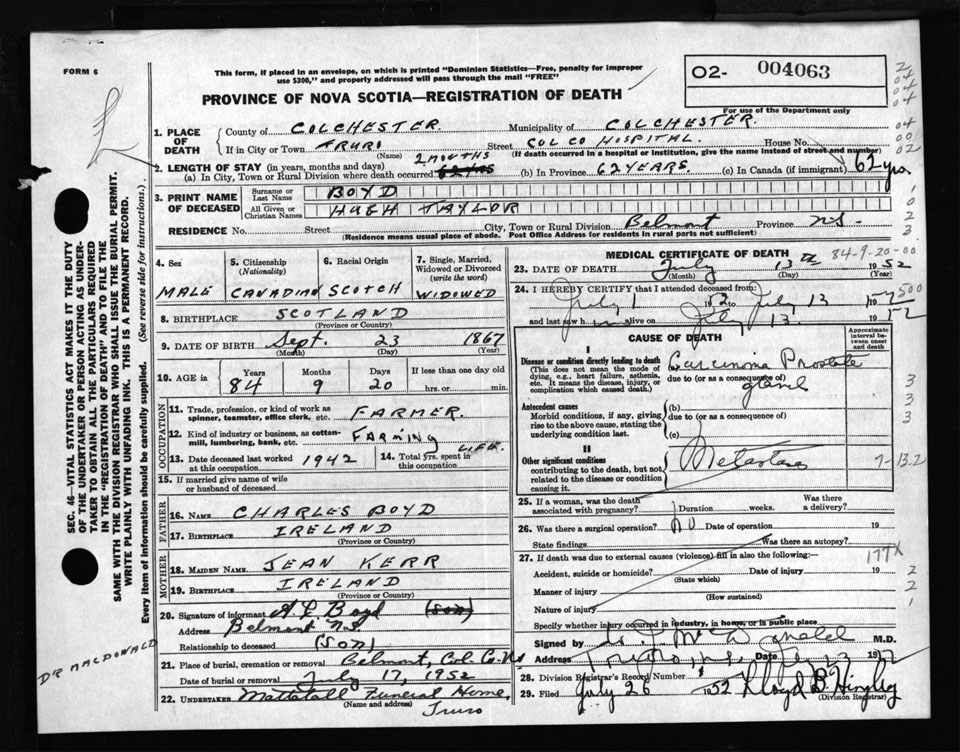 FORM 6
This form, if placed in an envelope, on which is printed "Dominion Statistics—Free, penalty for improper
use $300," and properly addressed will pass through the mail "FREE"
O2- 004063
PROVINCE OF NOVA SCOTIA—REGISTRATION OF DEATH
For use of the Department only
1. PLACE OF DEATH
County of COLCHESTER. Municipality of COLCHESTER.
If in City or Town TRURO (Name) Street COL CO HOSPITAL. House No.
(If death occurred in a hospital or institution, give the name instead of street and number)
2. LENGTH OF STAY (in years, months and days)
(a) In City, Town or Rural Division where death occurred 2 MONTHS (b) In Province 62 YEARS. (c) In Canada (if immigrant) 62 yrs.
3. PRINT NAME OF DECEASED
Surname or Last Name BOYD
All Given or Christian Names HUGH TAYLOR
RESIDENCE No. Street City, Town or Rural Division Belmont Province NS.
(Residence means usual place of abode. Post Office Address for residents in rural parts not sufficient)
4. Sex
MALE
5. Citizenship (Nationality)
CANADIAN
6. Racial Origin
SCOTCH
7. Single, Married, Widowed or Divorced (write the word)
WIDOWED
8. BIRTHPLACE SCOTLAND
(Province or Country)
9. DATE OF BIRTH Sept. 23 1867
(Month) (Day) (Year)
10. AGE in Years Months Days If less than one day old
84 9 20 hrs. or min.
OCCUPATION
11. Trade, profession, or kind of work as spinner, teamster, office clerk, etc. FARMER.
12. Kind of industry or business, as cotton-mill, lumbering, bank, etc. FARMING
13. Date deceased last worked at this occupation 1942
14. Total yrs. spent in this occupation LIFE.
15. If married give name of wife or husband of deceased
FATHER
16. NAME CHARLES BOYD
17. BIRTHPLACE IRELAND
(Province or Country)
MOTHER
18. MAIDEN NAME JEAN KERR
19. BIRTHPLACE IRELAND
(Province or Country)
20. Signature of informant A. L. Boyd (SON)
Address Belmont NS
Relationship to deceased (SON)
21. Place of burial, cremation or removal Belmont, Col. Co. NS
Date of burial or removal July 17, 1952
22. UNDERTAKER Mattatall Funeral Home,
(Name and address) Truro
MEDICAL CERTIFICATE OF DEATH 84-9-20-00
23. DATE OF DEATH July 13th 1952
(Month) (Day) (Year)
24. I HEREBY CERTIFY that I attended deceased from:
July 1 1952 to July 13 1952
and last saw him alive on July 13 1952
500
CAUSE OF DEATH
Approximate interval between onset and death
I
Disease or condition directly leading to death
(This does not mean the mode of dying, e.g., heart failure, asthenia, etc. It means the disease, injury, or complication which caused death.)
Carcinoma Prostate
due to (or as a consequence of)
gland
Antecedent causes
Morbid conditions, if any, giving rise to the above cause, stating the underlying condition last.
(b)
due to (or as a consequence of)
(c)
II
Other significant conditions
contributing to the death, but not related to the disease or condition causing it.
7-13.2
25. If a woman, was the death associated with pregnancy? Duration weeks. Was there a delivery?
26. Was there a surgical operation? NO Date of operation 19
State findings Was there an autopsy?
27. If death was due to external causes (violence) fill in also the following:
177X
Accident, suicide or homicide? Date of injury 19
(State which)
Manner of injury
(How sustained)
Nature of injury
Specify whether injury occurred in industry, in home, or in public place
Signed by M.D.
Address Truro, N.S. Date 19
28. Division Registrar's Record Number
29. Filed July 26 1952 Lloyd B. Hingley
(Division Registrar)
SEC. 46—VITAL STATISTICS ACT MAKES IT THE DUTY
OF THE UNDERTAKER OR PERSON ACTING AS UNDER-
TAKER TO OBTAIN ALL THE PARTICULARS REQUIRED
IN THE "REGISTRATION OF DEATH" AND TO FILE THE
SAME WITH THE DIVISION REGISTRAR WHO SHALL ISSUE THE BURIAL PERMIT.
WRITE PLAINLY WITH UNFADING INK. THIS IS A PERMANENT RECORD.
Every item of information should be carefully supplied. (See reverse side for instructions.)
DR MACDONALD